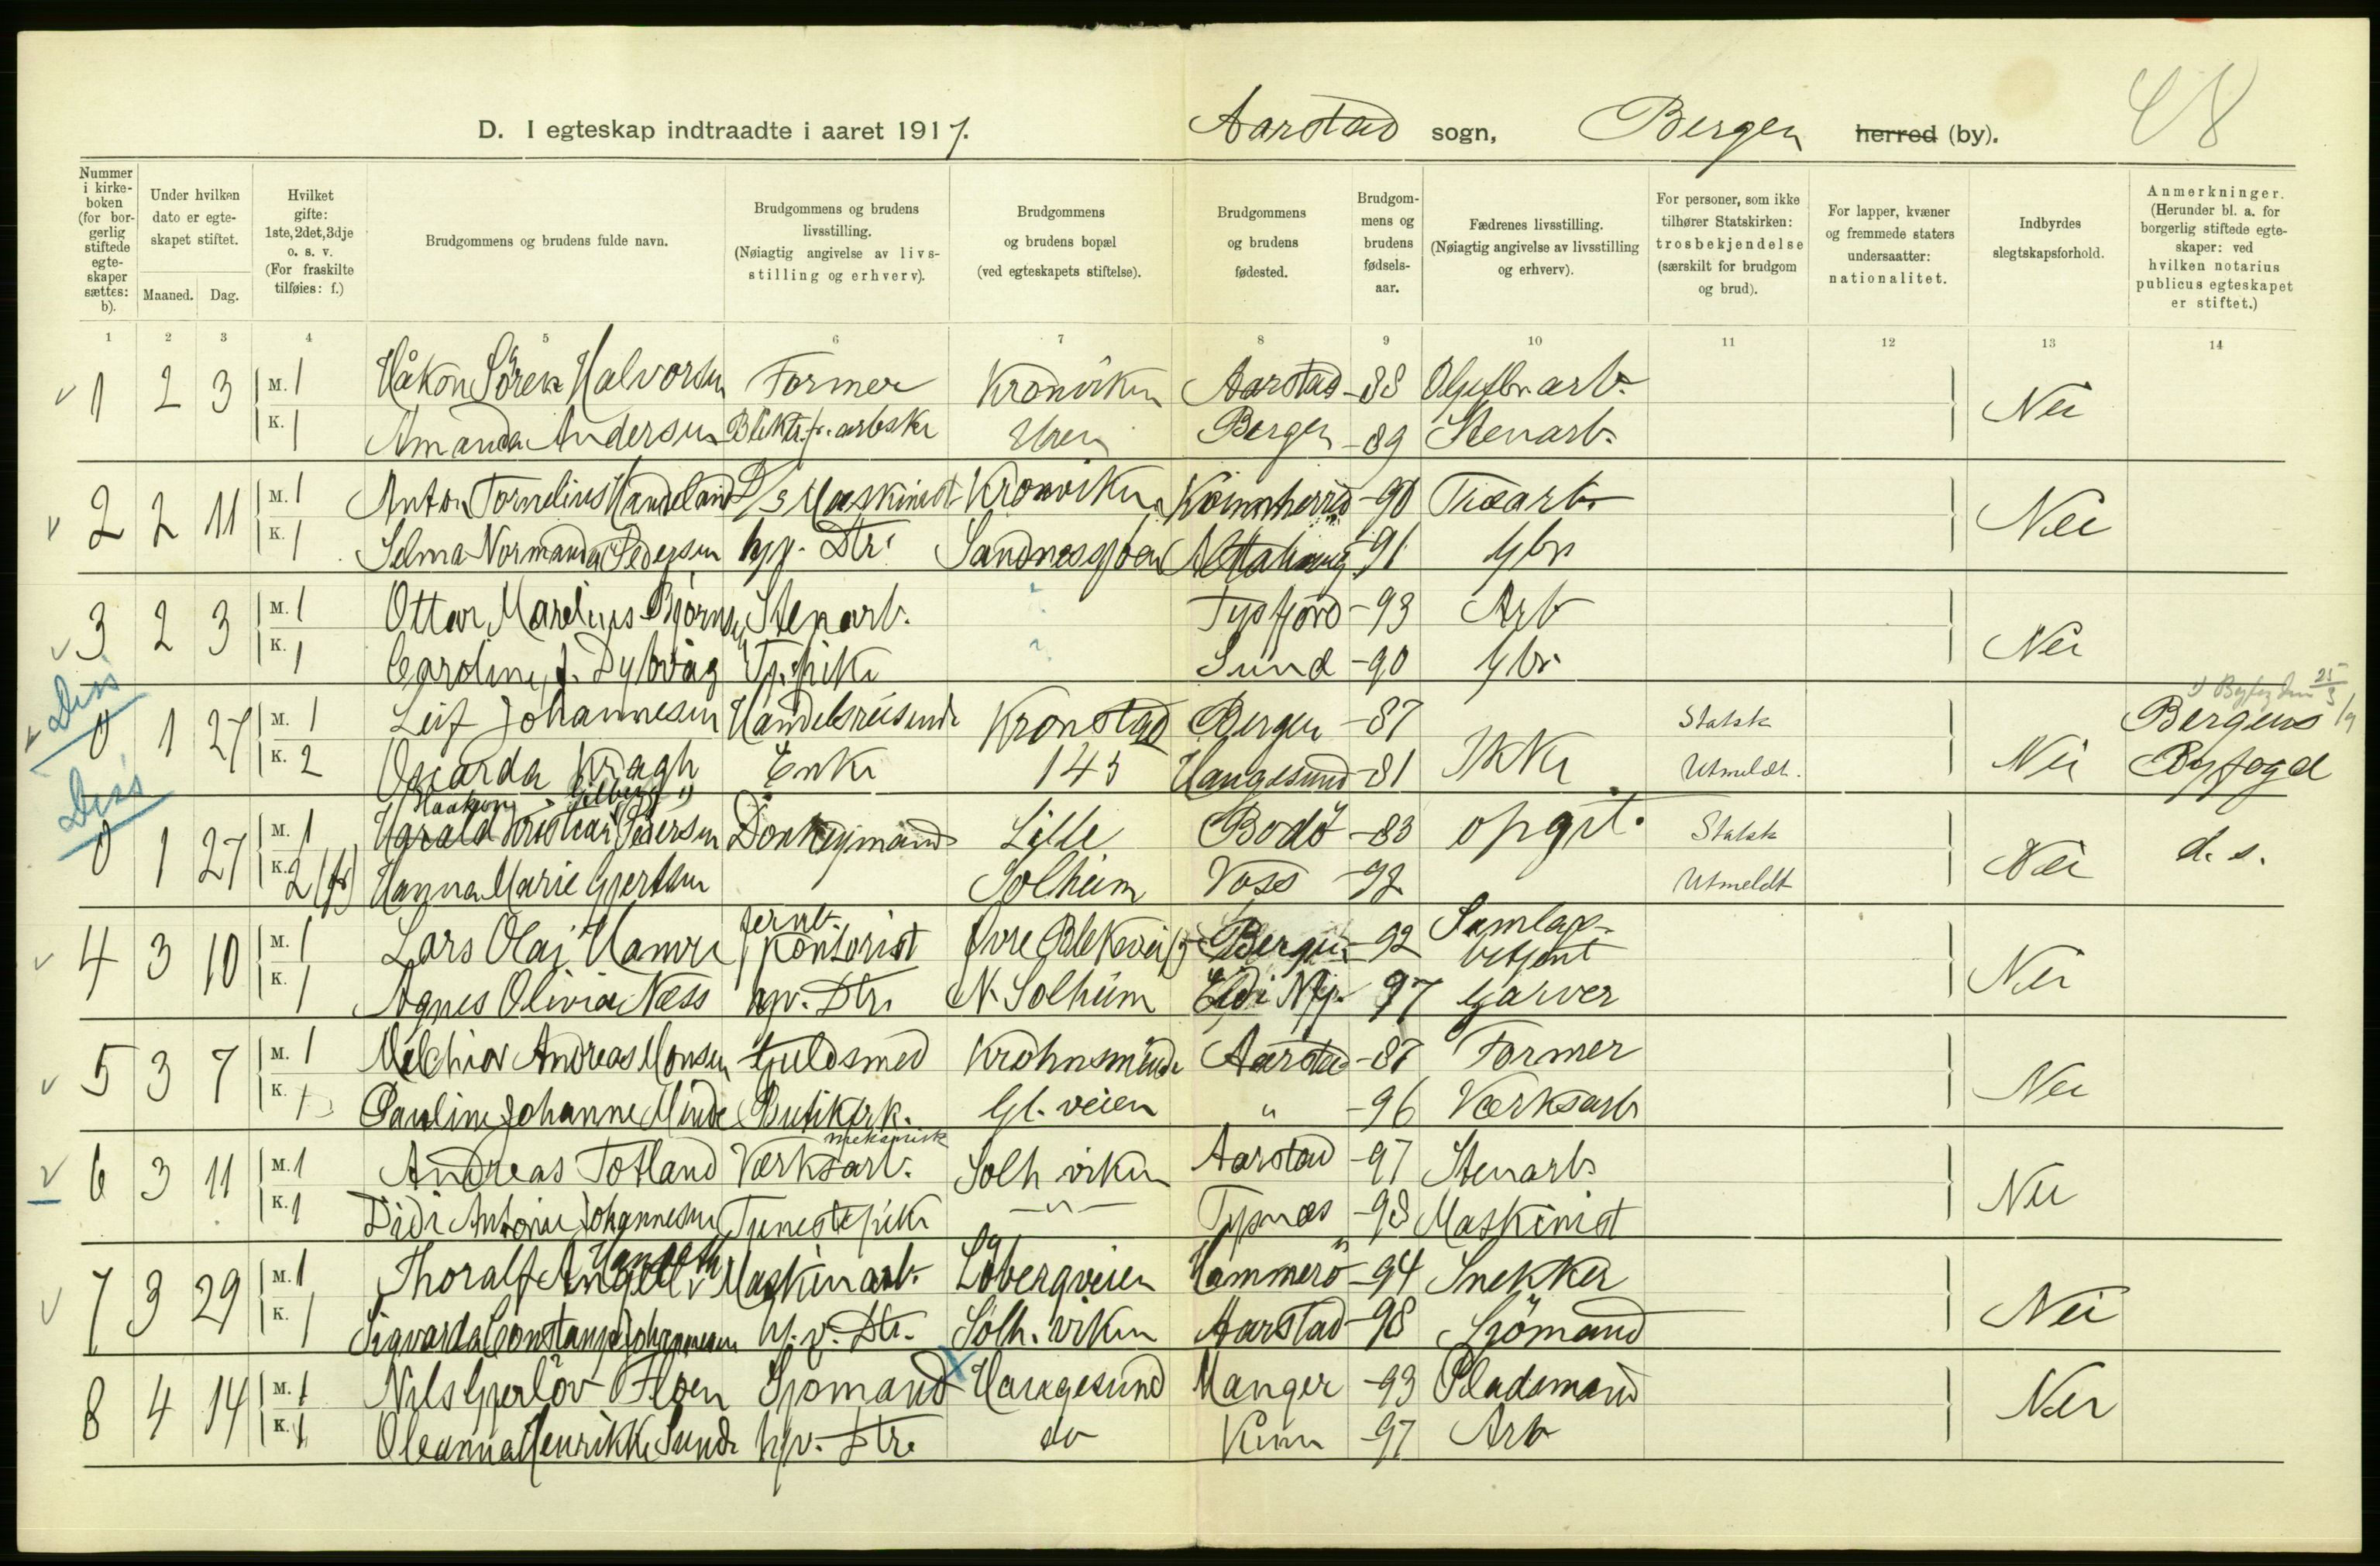 48
D. I egteskap indtraadte i aaret 1917. Aarstad sogn, Bergen herred (by).
Nummer i kirke-boken (for bor-gerlig stiftede egte-skaper sættes: b).
Under hvilken dato er egte-skapet stiftet.
Maaned. Dag.
Hvilket gifte: 1ste, 2det, 3dje o. s. v. (For fraskilte tilføies: f.)
Brudgommens og brudens fulde navn.
Brudgommens og brudens livsstilling. (Nøiagtig angivelse av livs-stilling og erhverv).
Brudgommens og brudens bopæl (ved egteskapets stiftelse).
Brudgommens og brudens fødested.
Brudgom-mens og brudens fødsels-aar.
Fædrenes livsstilling. (Nøiagtig angivelse av livsstilling og erhverv).
For personer, som ikke tilhører Statskirken: trosbekjendelse (særskilt for brudgom og brud).
For lapper, kvæner og fremmede staters undersaatter: nationalitet.
Indbyrdes slegtskapsforhold.
Anmerkninger. (Herunder bl. a. for borgerlig stiftede egte-skaper: ved hvilken notarius publicus egteskapet er stiftet.)
1 2 3 4 5 6 7 8 9 10 11 12 13 14
1 2 3 M. 1 Håkon Sören Halvorsen Former Kronviken Aarstad -88 arb. Nei
K. 1 Amanda Andersen Bliktr.f. arbske Uren Bergen -89 Stenarb.
2 2 11 M. 1 Anton Tornelius Handeland D/S Maskinist Kronviken -90 Nei
K. 1 Selma Normanda Pedersen hjv. Dtr. Sandnessjøen Alstahaug -91 Gbr
3 2 3 M. 1 Ottar Marelius Bjørnsen Stenarb. ? Tysfjord -93 Arb Nei
K. 1 Caroline J. Dybvåg Tj.pike ? Sund -90 Gbr.
Diss
0 1 27 M. 1 Leif Johannesen Handelsreisende Kronstad Bergen -87 Ikke Statsk Nei Bergens
K. 2 Osiarda Kragh Enke 145 Haugesund -81 Utmeldt. Byfogd
Diss
0 1 27 M. 1 Harald Kristian Pedersen Donkeymand Lille Bodö -83 opgit. Statsk Nei d. s.
K. 2 (fr) Hanna Marie Gjertsen Solheim Voss -92 Utmeldt
4 3 10 M. 1 Lars Olai Hamre Jernb. Kontorist Øvre Blekevei Bergen -92 Samlag. betjent Nei
K. 1 Agnes Olivia Næss hjv. Dtr. N. Solheim -97 Garver
5 3 7 M. 1 Melchior Andreas Monsen Guldsmed Krohnsminde Aarstad -87 Former Nei
K. 1 Pauline Johanne Minde Butikerk. Gl. veien " -96 Værksarb
6 3 11 M. 1 Andreas Totland mekanisk Værksarb. Solh viken Aarstad -97 Stenarb. Nei
K. 1 Didi Antonie Johannesen Tjenestepike — " — Tysnæs -98 Maskinist
7 3 29 M. 1 Thoralf Angell Maskinarb. Løbergveien Hammerö -94 Snekker Nei
K. 1 Sigvarda Constanse Johannesen hj. v. Dtr. Solh. viken Aarstad -98 Sjömand
8 4 14 M. 1 Nils Gjerlöv Floen Sjømand Haugesund Manger -93 Pladsmand Nei
K. 1 Oleanna Henrikke Sunde hjv. Dtr. do Kinn -97 Arb